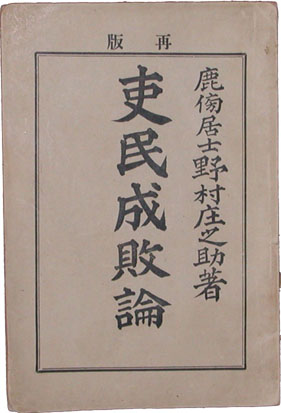 版再
鹿傍居士野村庄之助著
吏民成敗論